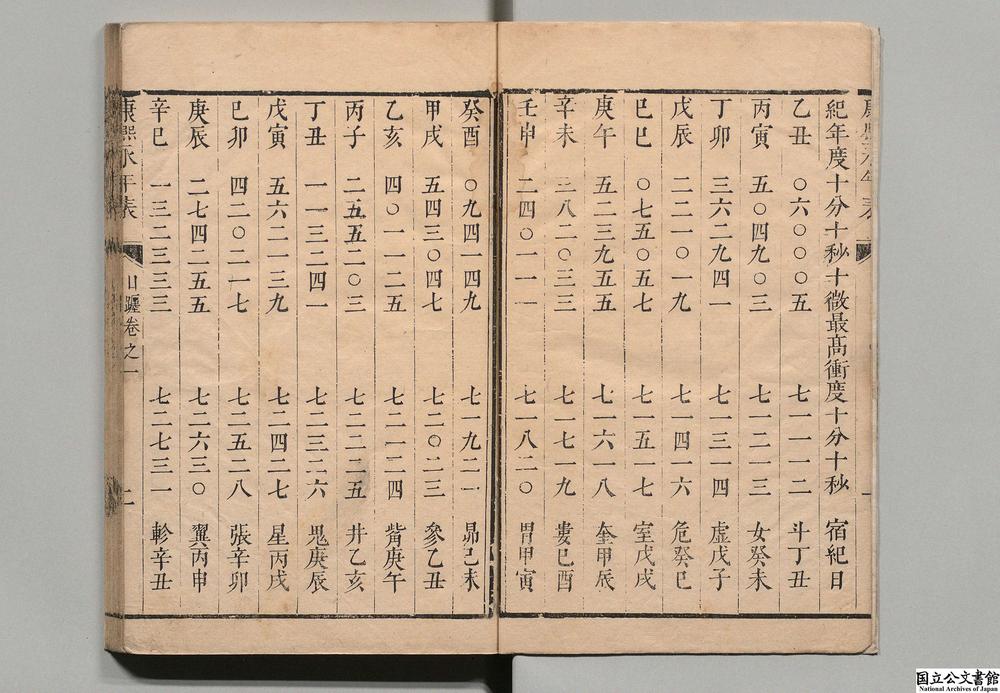 康熙永年表 一
紀年度十分十秒十微最高衝度十分十秒 宿紀日
乙丑 〇六〇〇〇五 七一一一二 斗丁丑
丙寅 五〇四九〇三 七一二一三 女癸未
丁卯 三六二九四一 七一三一四 虚戊子
戊辰 二二一〇一九 七一四一六 危癸巳
己巳 〇七五〇五七 七一五一七 室戊戌
庚午 五二三九五五 七一六一八 奎甲辰
辛未 三八二〇三三 七一七一九 婁己酉
壬申 二四〇一一一 七一八二〇 胃甲寅
癸酉 〇九四一四九 七一九二一 昴己未
甲戌 五四三〇四七 七二〇二三 參乙丑
乙亥 四〇一一二五 七二一二四 觜庚午
丙子 二五五二〇三 七二二二五 井乙亥
丁丑 一一三二四一 七二三二六 鬼庚辰
戊寅 五六二一三九 七二四二七 星丙戌
己卯 四二〇二一七 七二五二八 張辛卯
庚辰 二七四二五五 七二六三〇 翼丙申
辛巳 一三二三三三 七二七三一 軫辛丑
康熙永年表 日躔卷之一 二
国立公文書館
National Archives of Japan